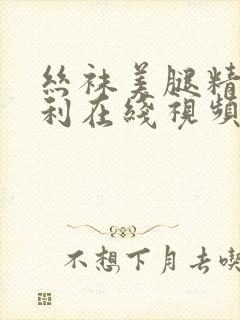 絲袜美腿精
利在綫視頻
不想下月去喫